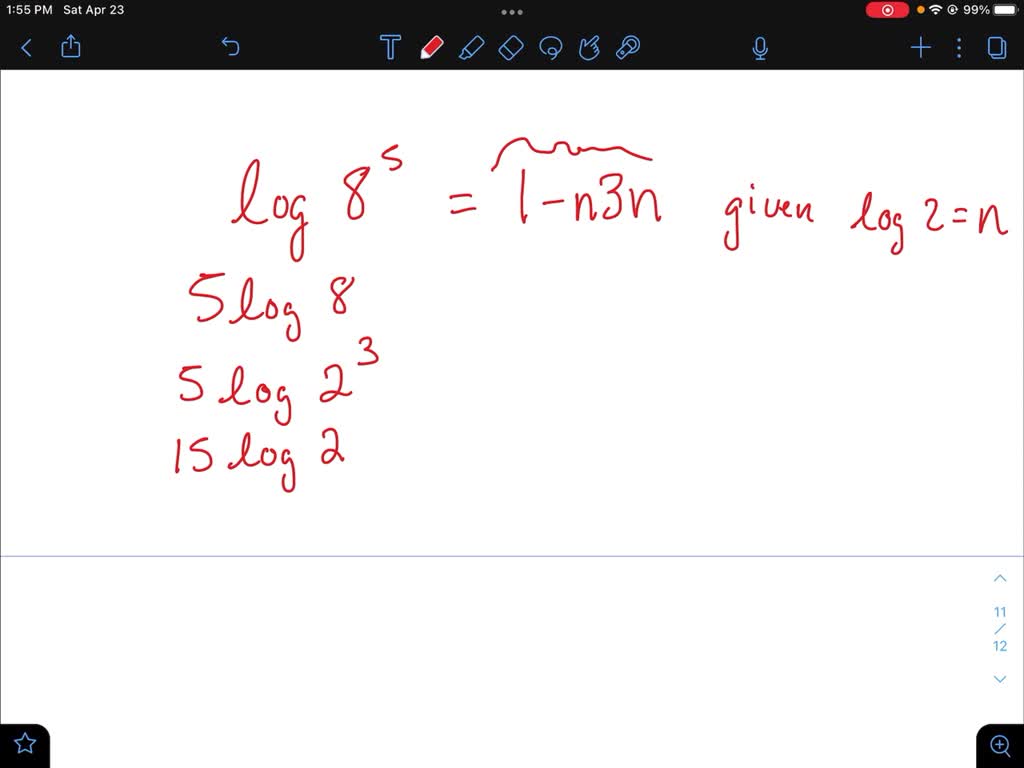 1:55 PM Sat Apr 23
99%
log 8⁵ = 1-n3n given log 2 = n
5 log 8
5 log 2³
15 log 2
11
/
12